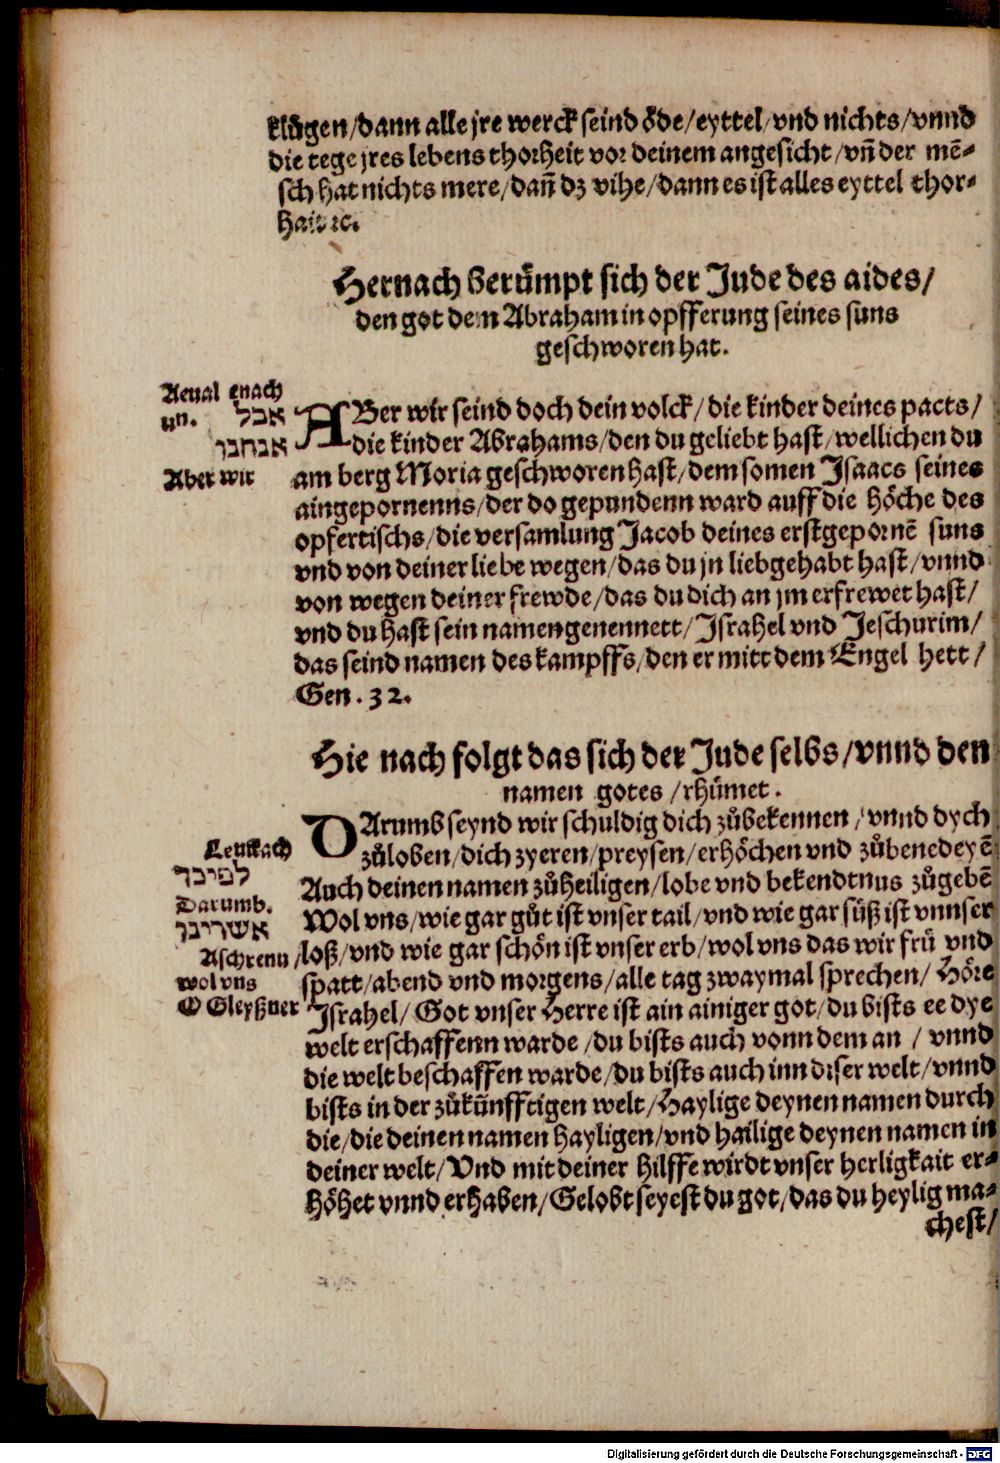 klůgen/dann alle jre werck seind öde/eyttel/vnd nichts/vnnd
die tege jres lebens thorheit vor deinem angesicht/vñ der mē-
sch hat nichts mere/dañ dz vihe/dann es ist alles eyttel thor-
hait ꝛc.
Hernach berůmpt sich der Jude des aides/
den got dem Abraham in opfferung seines suns
geschworen hat.
Aeual enach
un. אבל
אנחנו
Aber wir
ABer wir seind doch dein volck/die kinder deines pacts/
die kinder Abrahams/den du geliebt hast/wellichen du
am berg Moria geschworen hast/dem somen Isaacs seines
aingepornenns/der do gepundenn ward auff die höche des
opfertischs/die versamlung Jacob deines erstgepornē suns
vnd von deiner liebe wegen/das du jn liebgehabt hast/vnnd
von wegen deiner frewde/das du dich an jm erfrewet hast/
vnd du hast sein namen genennett/Israhel vnd Jeschurim/
das seind namen des kampffs/den er mitt dem Engel hett/
Gen. 32.
Hie nach folgt das sich der Jude selbs/vnnd den
namen gotes/rhůmet.
Leuikach
לפיכך
Darumb.
אשרינו
Aschrenu
wol vns
O Gleyßner
DArumb seynd wir schuldig dich zůbekennen/vnnd dych
zůloben/dich zyeren/preysen/erhöchen vnd zůbenedeyē
Auch deinen namen zůheiligen/lobe vnd bekendtnus zůgebē
Wol vns/wie gar gůt ist vnser tail/vnd wie gar süß ist vnnser
loß/vnd wie gar schön ist vnser erb/wol vns das wir frü vnd
spatt/abend vnd morgens/alle tag zwaymal sprechen/Höre
Israhel/Got vnser Herre ist ain ainiger got/du bists ee dye
welt erschaffenn warde/du bists auch vonn dem an/vnnd
die welt beschaffen warde/du bists auch inn diser welt/vnnd
bists in der zůkünfftigen welt/Haylige deynen namen durch
die/die deinen namen hayligen/vnd hailige deynen namen in
deiner welt/Vnd mit deiner hilffe wirdt vnser herligkait er-
höhet vnnd erhaben/Gelobt seyest du got/das du heylig ma-
chest/
Digitalisierung gefördert durch die Deutsche Forschungsgemeinschaft - DFG